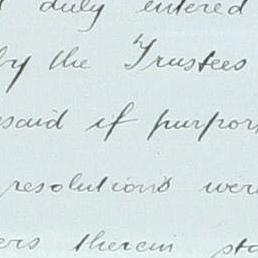 duly entered
by the Trustees
said if purpor
resolutions wer
ers therein sta